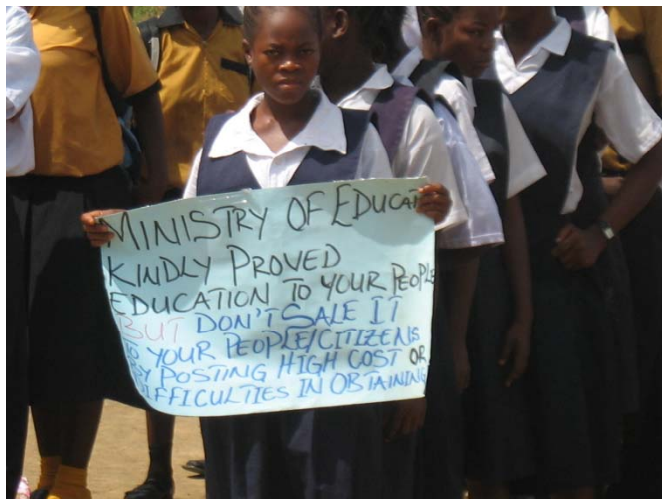 MINISTRY OF EDUCAT
KINDLY PROVED
EDUCATION TO YOUR PEOPLE
BUT DON'T SALE IT
TO YOUR PEOPLE/CITIZENS
BY POSTING HIGH COST OR
DIFFICULTIES IN OBTAINING